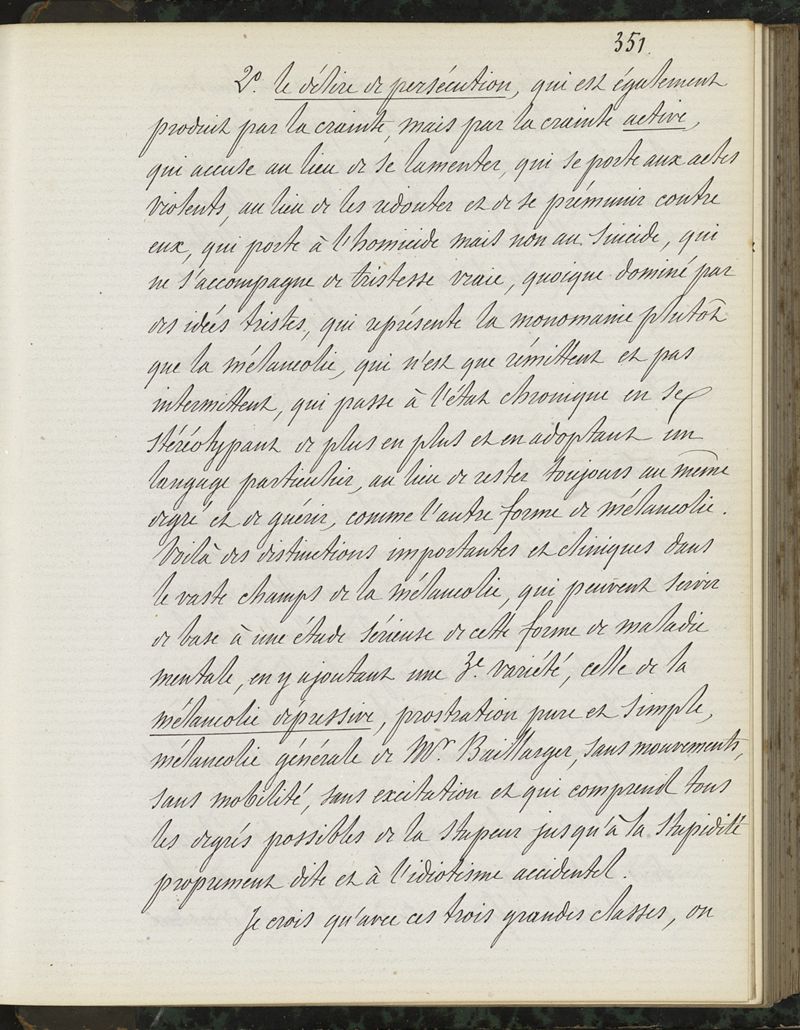 351.
2º. le délire de persécution, qui est également
produit par la crainte, mais par la crainte active,
qui accuse au lieu de se lamenter, qui se porte aux actes
violents, au lieu de les redouter et de se prémunir contre
eux, qui porte à l'homicide mais non au suicide, qui
ne s'accompagne de tristesse vraie, quoique dominé par
des idées tristes, qui représente la monomanie plutôt
que la mélancolie, qui n'est que rémittent et pas
intermittent, qui passe à l'état chronique en se
stéréotypant de plus en plus et en adoptant un
langage particulier, au lieu de rester toujours au même
degré et de guérir, comme l'autre forme de mélancolie.
Voilà des distinctions importantes et cliniques dans
le vaste champs de la mélancolie, qui peuvent servir
de base à une étude sérieuse de cette forme de maladie
mentale, en y ajoutant une 3e. variété, celle de la
mélancolie dépressive, prostration pure et simple,
mélancolie générale de Mr. Baillarger, sans mouvements,
sans mobilité, sans excitation et qui comprend tous
les degrés possibles de la stupeur jusqu'à la stupidité
proprement dite et à l'idiotisme accidentel.
Je crois qu'avec ces trois grandes classes, on